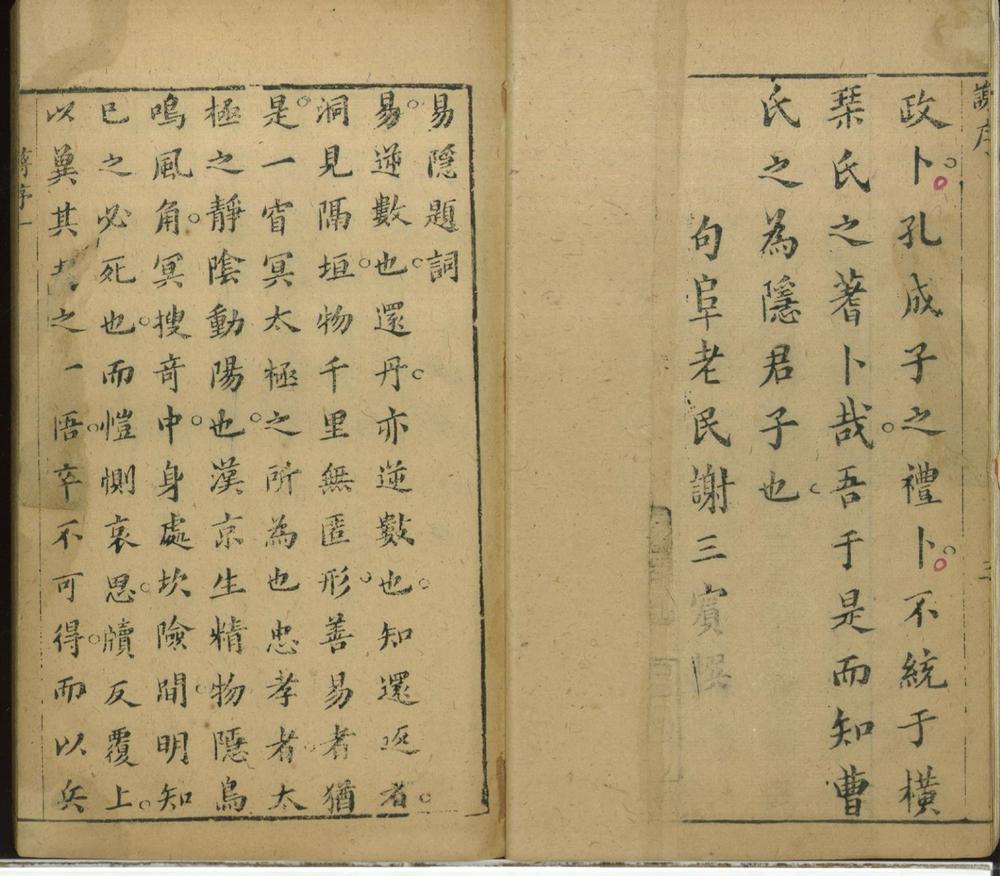 謝序
三
政卜孔成子之禮卜不統于橫
琹氏之蓍卜哉吾于是而知曹
氏之為隱君子也
句阜老民謝三賓撰
易隱題詞
易逆數也還丹亦逆數也知還返者
洞見隔垣物千里無匿形善易者猶
是一窅冥太極之所為也忠孝者太
極之靜陰動陽也漢京生精物隱鳥
鳴風角冥搜竒中身處坎險間明知
已之必死也而愷惻哀思牘反覆上
以冀其君之一悟卒不可得而以兵
序一